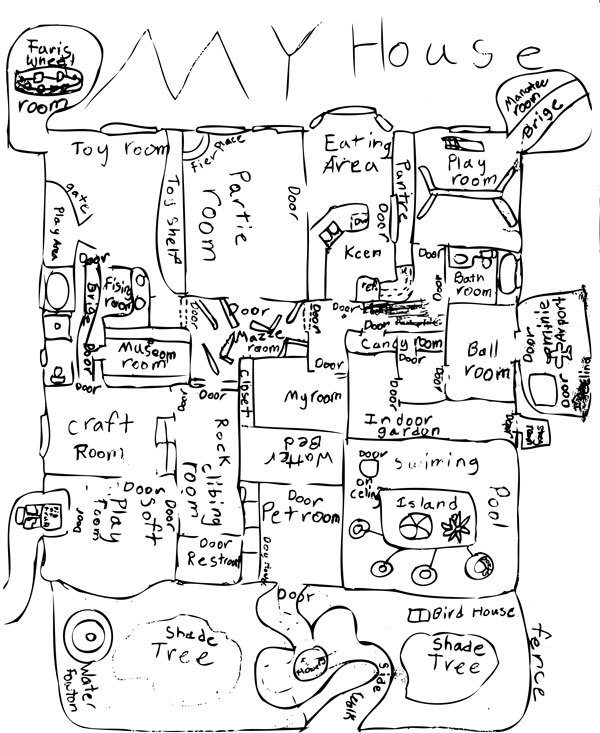 MY House
Faris
wheel
room
Manatee
room
Brige
Toy room
Toy Shelf
Fier Place
Partie
room
Door
Eating
Area
Pantre
Door
Play
room
gate
Play Area
Door
Brige
Fising
room
Door
Kcen
DW
ref.
Door
Bath
room
Door
Door
Mazze
room
Door
Door
Candy room
Door
Ball
room
Door
Airport
Door
Museom
room
Door
Door
Door
closet
My room
Door
Door
Indoor
gardon
Door
Craft
Room
Rock
clibing
room
Watter
Bed
Door
on
celing
Swiming
Pool
Island
Door
Play
room
Soft
Door
Door
Door
Petroom
Door
Restroom
Door
Bird House
Shade
Tree
Water
Fowton
Side
Walk
Shade
Tree
fence